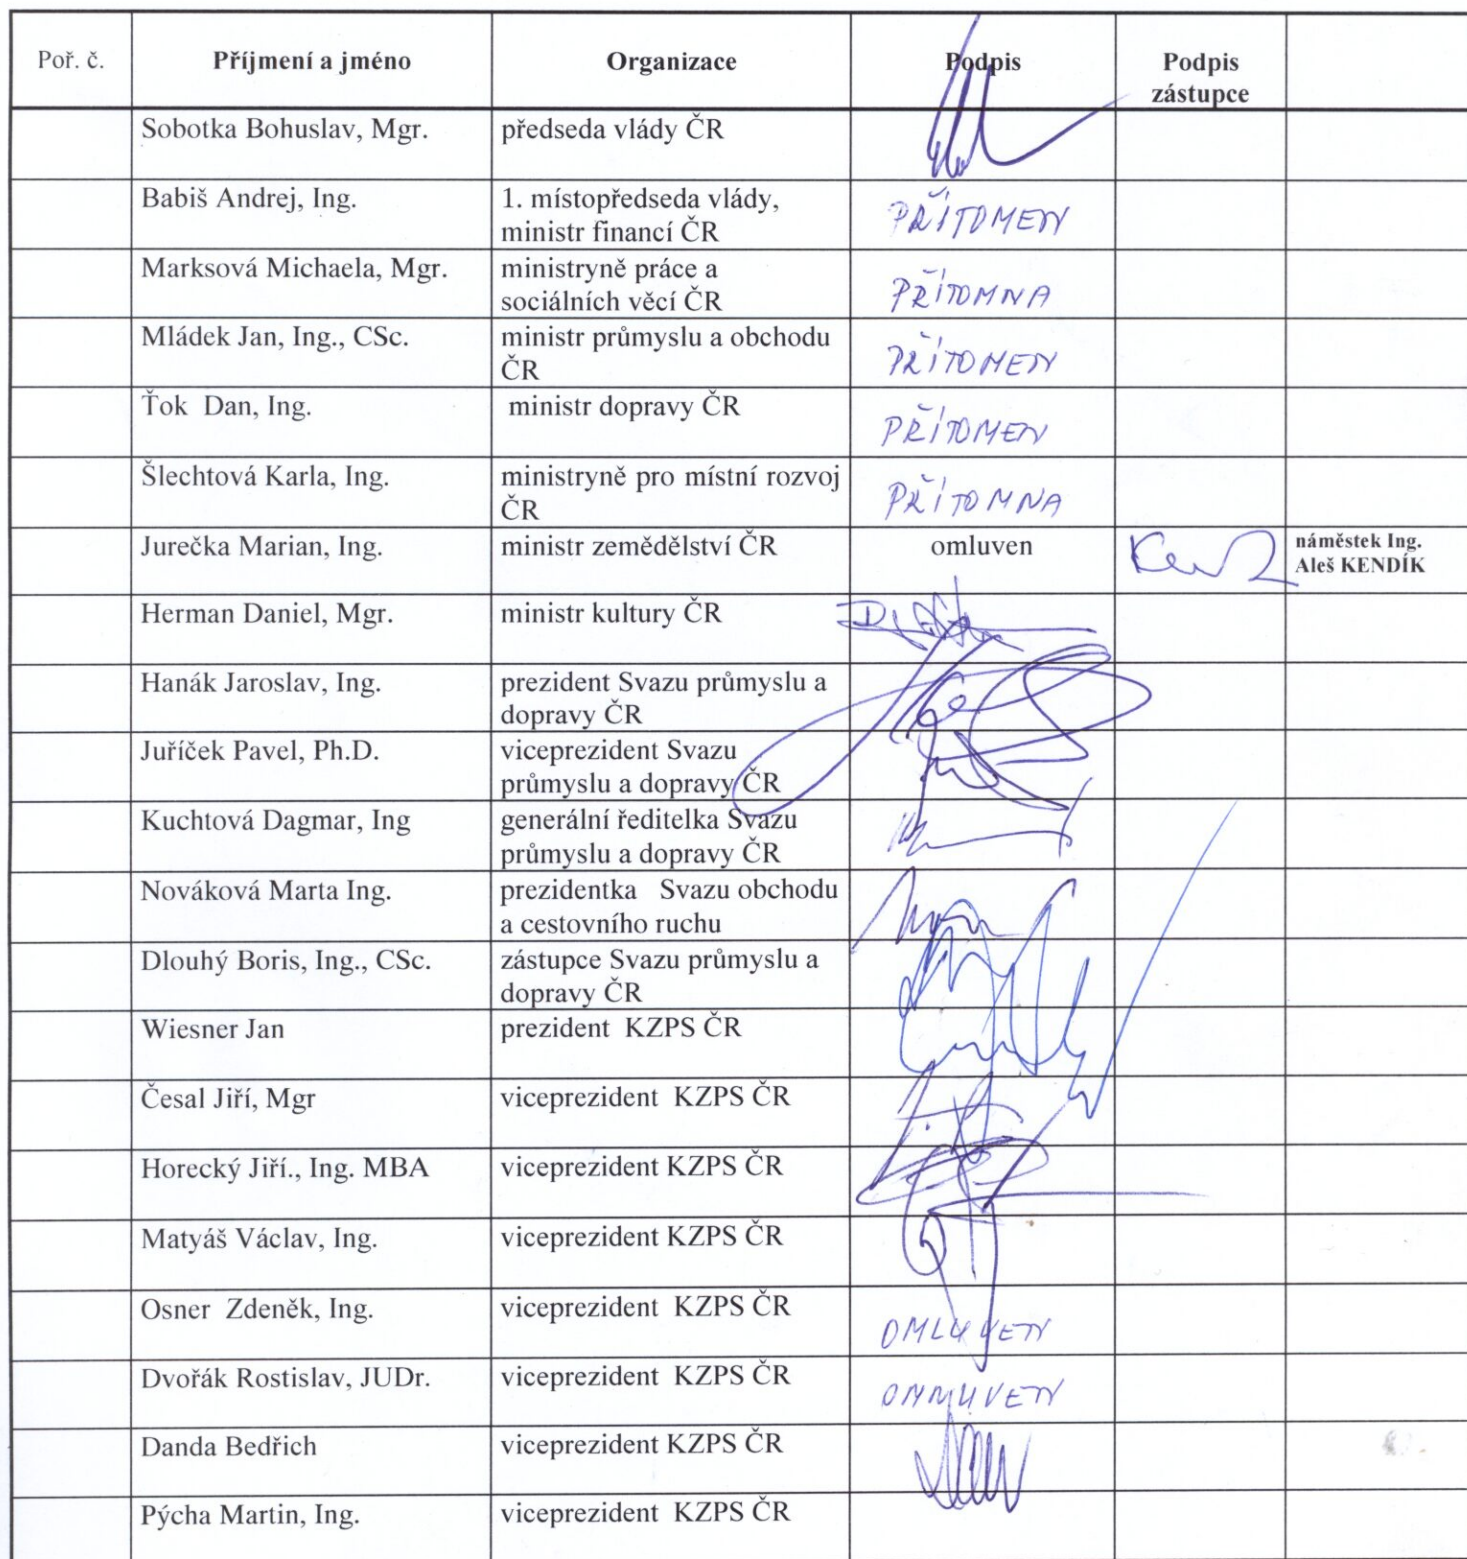 Poř. č. Příjmení a jméno Organizace Podpis Podpis
zástupce
Sobotka Bohuslav, Mgr. předseda vlády ČR
Babiš Andrej, Ing. 1. místopředseda vlády,
ministr financí ČR PŘÍTOMEN
Marksová Michaela, Mgr. ministryně práce a
sociálních věcí ČR PŘÍTOMNA
Mládek Jan, Ing., CSc. ministr průmyslu a obchodu
ČR PŘÍTOMEN
Ťok Dan, Ing. ministr dopravy ČR PŘÍTOMEN
Šlechtová Karla, Ing. ministryně pro místní rozvoj
ČR PŘÍTOMNA
Jurečka Marian, Ing. ministr zemědělství ČR omluven náměstek Ing.
Aleš KENDÍK
Herman Daniel, Mgr. ministr kultury ČR
Hanák Jaroslav, Ing. prezident Svazu průmyslu a
dopravy ČR
Juříček Pavel, Ph.D. viceprezident Svazu
průmyslu a dopravy ČR
Kuchtová Dagmar, Ing generální ředitelka Svazu
průmyslu a dopravy ČR
Nováková Marta Ing. prezidentka Svazu obchodu
a cestovního ruchu
Dlouhý Boris, Ing., CSc. zástupce Svazu průmyslu a
dopravy ČR
Wiesner Jan prezident KZPS ČR
Česal Jiří, Mgr viceprezident KZPS ČR
Horecký Jiří., Ing. MBA viceprezident KZPS ČR
Matyáš Václav, Ing. viceprezident KZPS ČR
Osner Zdeněk, Ing. viceprezident KZPS ČR OMLUVEN
Dvořák Rostislav, JUDr. viceprezident KZPS ČR
Danda Bedřich viceprezident KZPS ČR
Pýcha Martin, Ing. viceprezident KZPS ČR